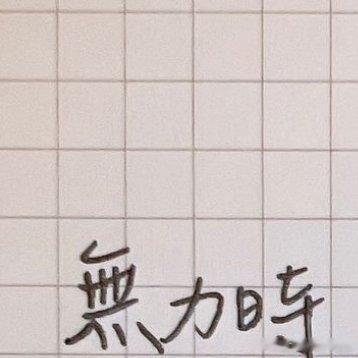 無力時